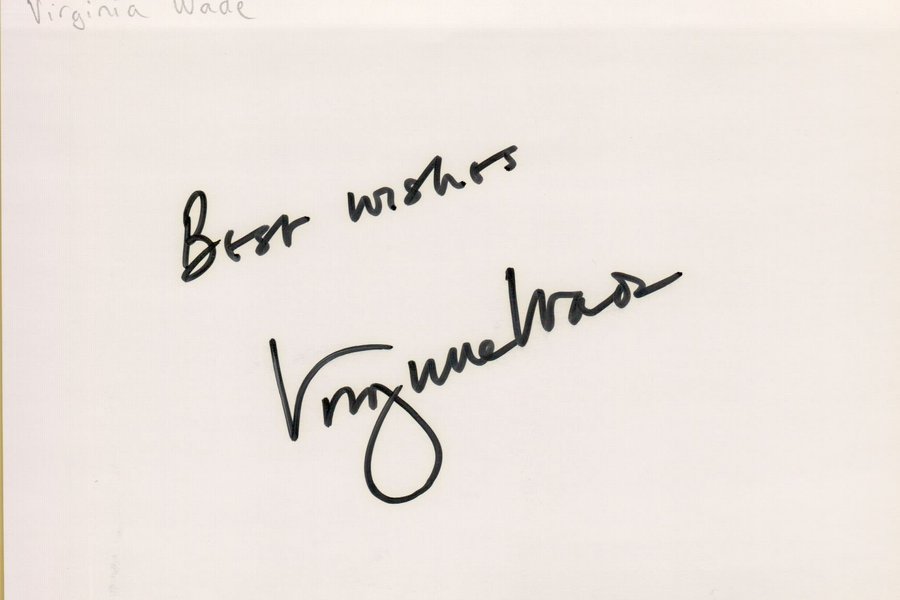 Virginia Wade
Best wishes
Virginia Wade